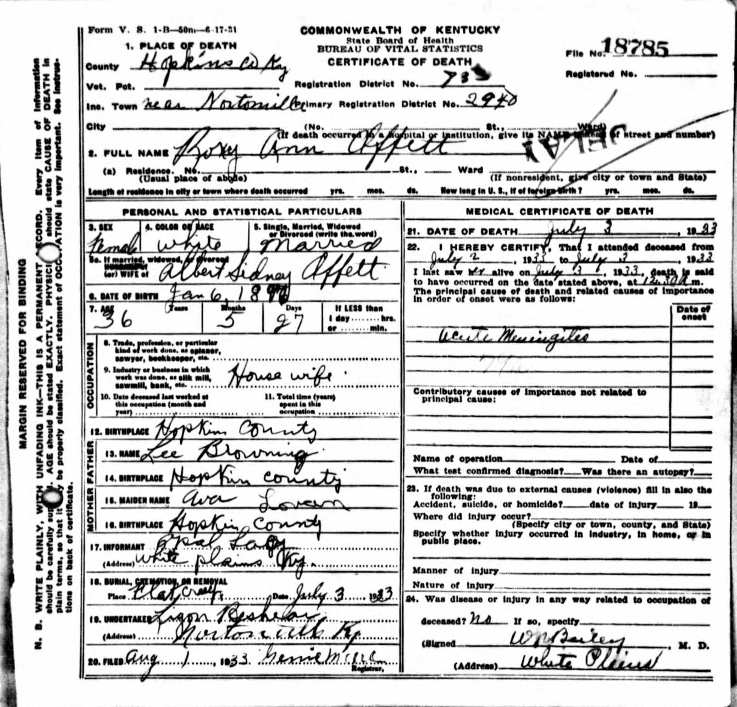 Form V. S. 1-B—50m—6-17-31
COMMONWEALTH OF KENTUCKY
State Board of Health
BUREAU OF VITAL STATISTICS
CERTIFICATE OF DEATH
File No. 18785
Registered No.
1. PLACE OF DEATH
County Hopkins Co Ky
Vot. Pct. Registration District No.
Inc. Town near Nortonville Primary Registration District No. 2940
City (No. St., Ward)
(If death occurred in a hospital or institution, give its NAME instead of street and number)
DELAY
2. FULL NAME Roxy Ann Offett
(a) Residence. No. St., Ward
(Usual place of abode) (If nonresident, give city or town and State)
Length of residence in city or town where death occurred yrs. mos. ds. How long in U. S., if of foreign birth? yrs. mos. ds.
PERSONAL AND STATISTICAL PARTICULARS
3. SEX 4. COLOR OR RACE 5. Single, Married, Widowed or Divorced (write the word)
Female White Married
5a. If married, widowed, or divorced
(or) WIFE of Albert Sidney Offett
6. DATE OF BIRTH Jan 6, 18
7. AGE Years Months Days If LESS than
36 5 27 1 day hrs.
or min.
OCCUPATION
8. Trade, profession, or particular
kind of work done, as spinner,
sawyer, bookkeeper, etc.
9. Industry or business in which
work was done, as silk mill,
sawmill, bank, etc. House wife
10. Date deceased last worked at
this occupation (month and
year)
11. Total time (years)
spent in this
occupation
12. BIRTHPLACE Hopkin County
FATHER
13. NAME Lee Browning
14. BIRTHPLACE Hopkin County
MOTHER
15. MAIDEN NAME Ava Lovan
16. BIRTHPLACE Hopkin County
17. INFORMANT Opal
(Address) White Plains Ky.
18. BURIAL, CREMATION, OR REMOVAL
Place Flat Creek Date July 3 1933
19. UNDERTAKER
(Address) Nortonville Ky
20. FILED Aug 1, 1933
Registrar.
MEDICAL CERTIFICATE OF DEATH
21. DATE OF DEATH July 3, 1933
22. I HEREBY CERTIFY, That I attended deceased from
July 2, 1933 to July 3, 1933
I last saw her alive on July 3, 1933, death is said
to have occurred on the date stated above, at 12:30 A m.
The principal cause of death and related causes of importance
in order of onset were as follows:
Date of onset
Acute Meningites
Contributory causes of importance not related to
principal cause:
Name of operation Date of
What test confirmed diagnosis? Was there an autopsy?
23. If death was due to external causes (violence) fill in also the
following:
Accident, suicide, or homicide? date of injury 19
Where did injury occur?
(Specify city or town, county, and State)
Specify whether injury occurred in industry, in home, or in
public place.
Manner of injury
Nature of injury
24. Was disease or injury in any way related to occupation of
deceased? No If so, specify
(Signed W Bailey, M. D.
(Address) White Plains
MARGIN RESERVED FOR BINDING
N. B. WRITE PLAINLY, WITH UNFADING INK—THIS IS A PERMANENT RECORD. Every item of information
should be carefully supplied. AGE should be stated EXACTLY. PHYSICIANS should state CAUSE OF DEATH in
plain terms, so that it may be properly classified. Exact statement of OCCUPATION is very important. See instruc-
tions on back of certificate.